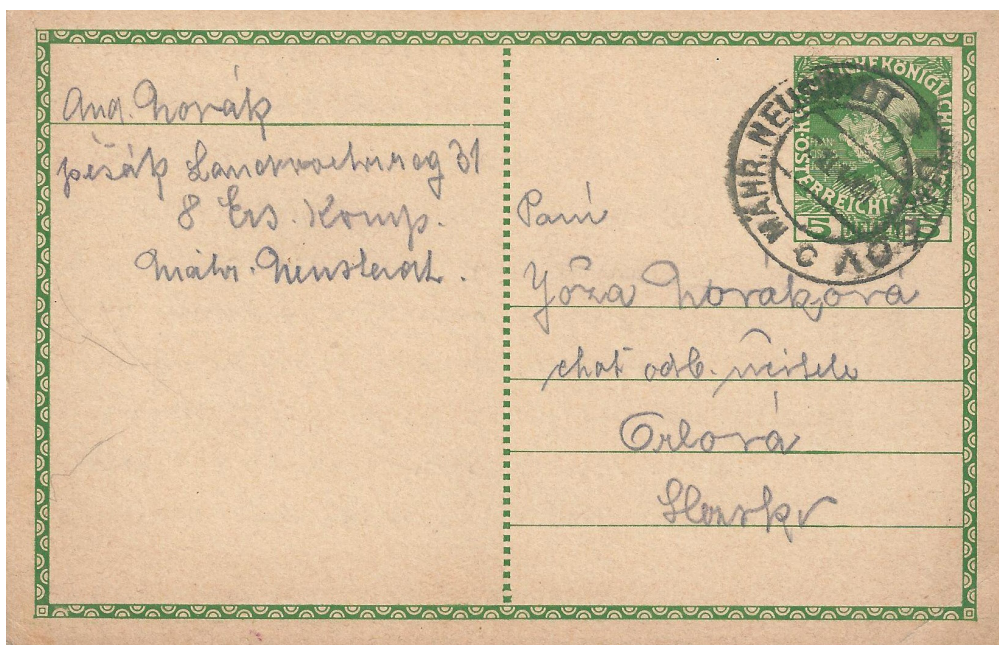 And. Novák
pěšák Landwehrreg 31
8 Ers. Komp.
Mähr. Neustadt.
Paní
Jóža Nováková
choť odb. učitele
Orlová
Slezsko
MÄHR. NEUSTADT
UNIČOV
C
5 HELLER 5